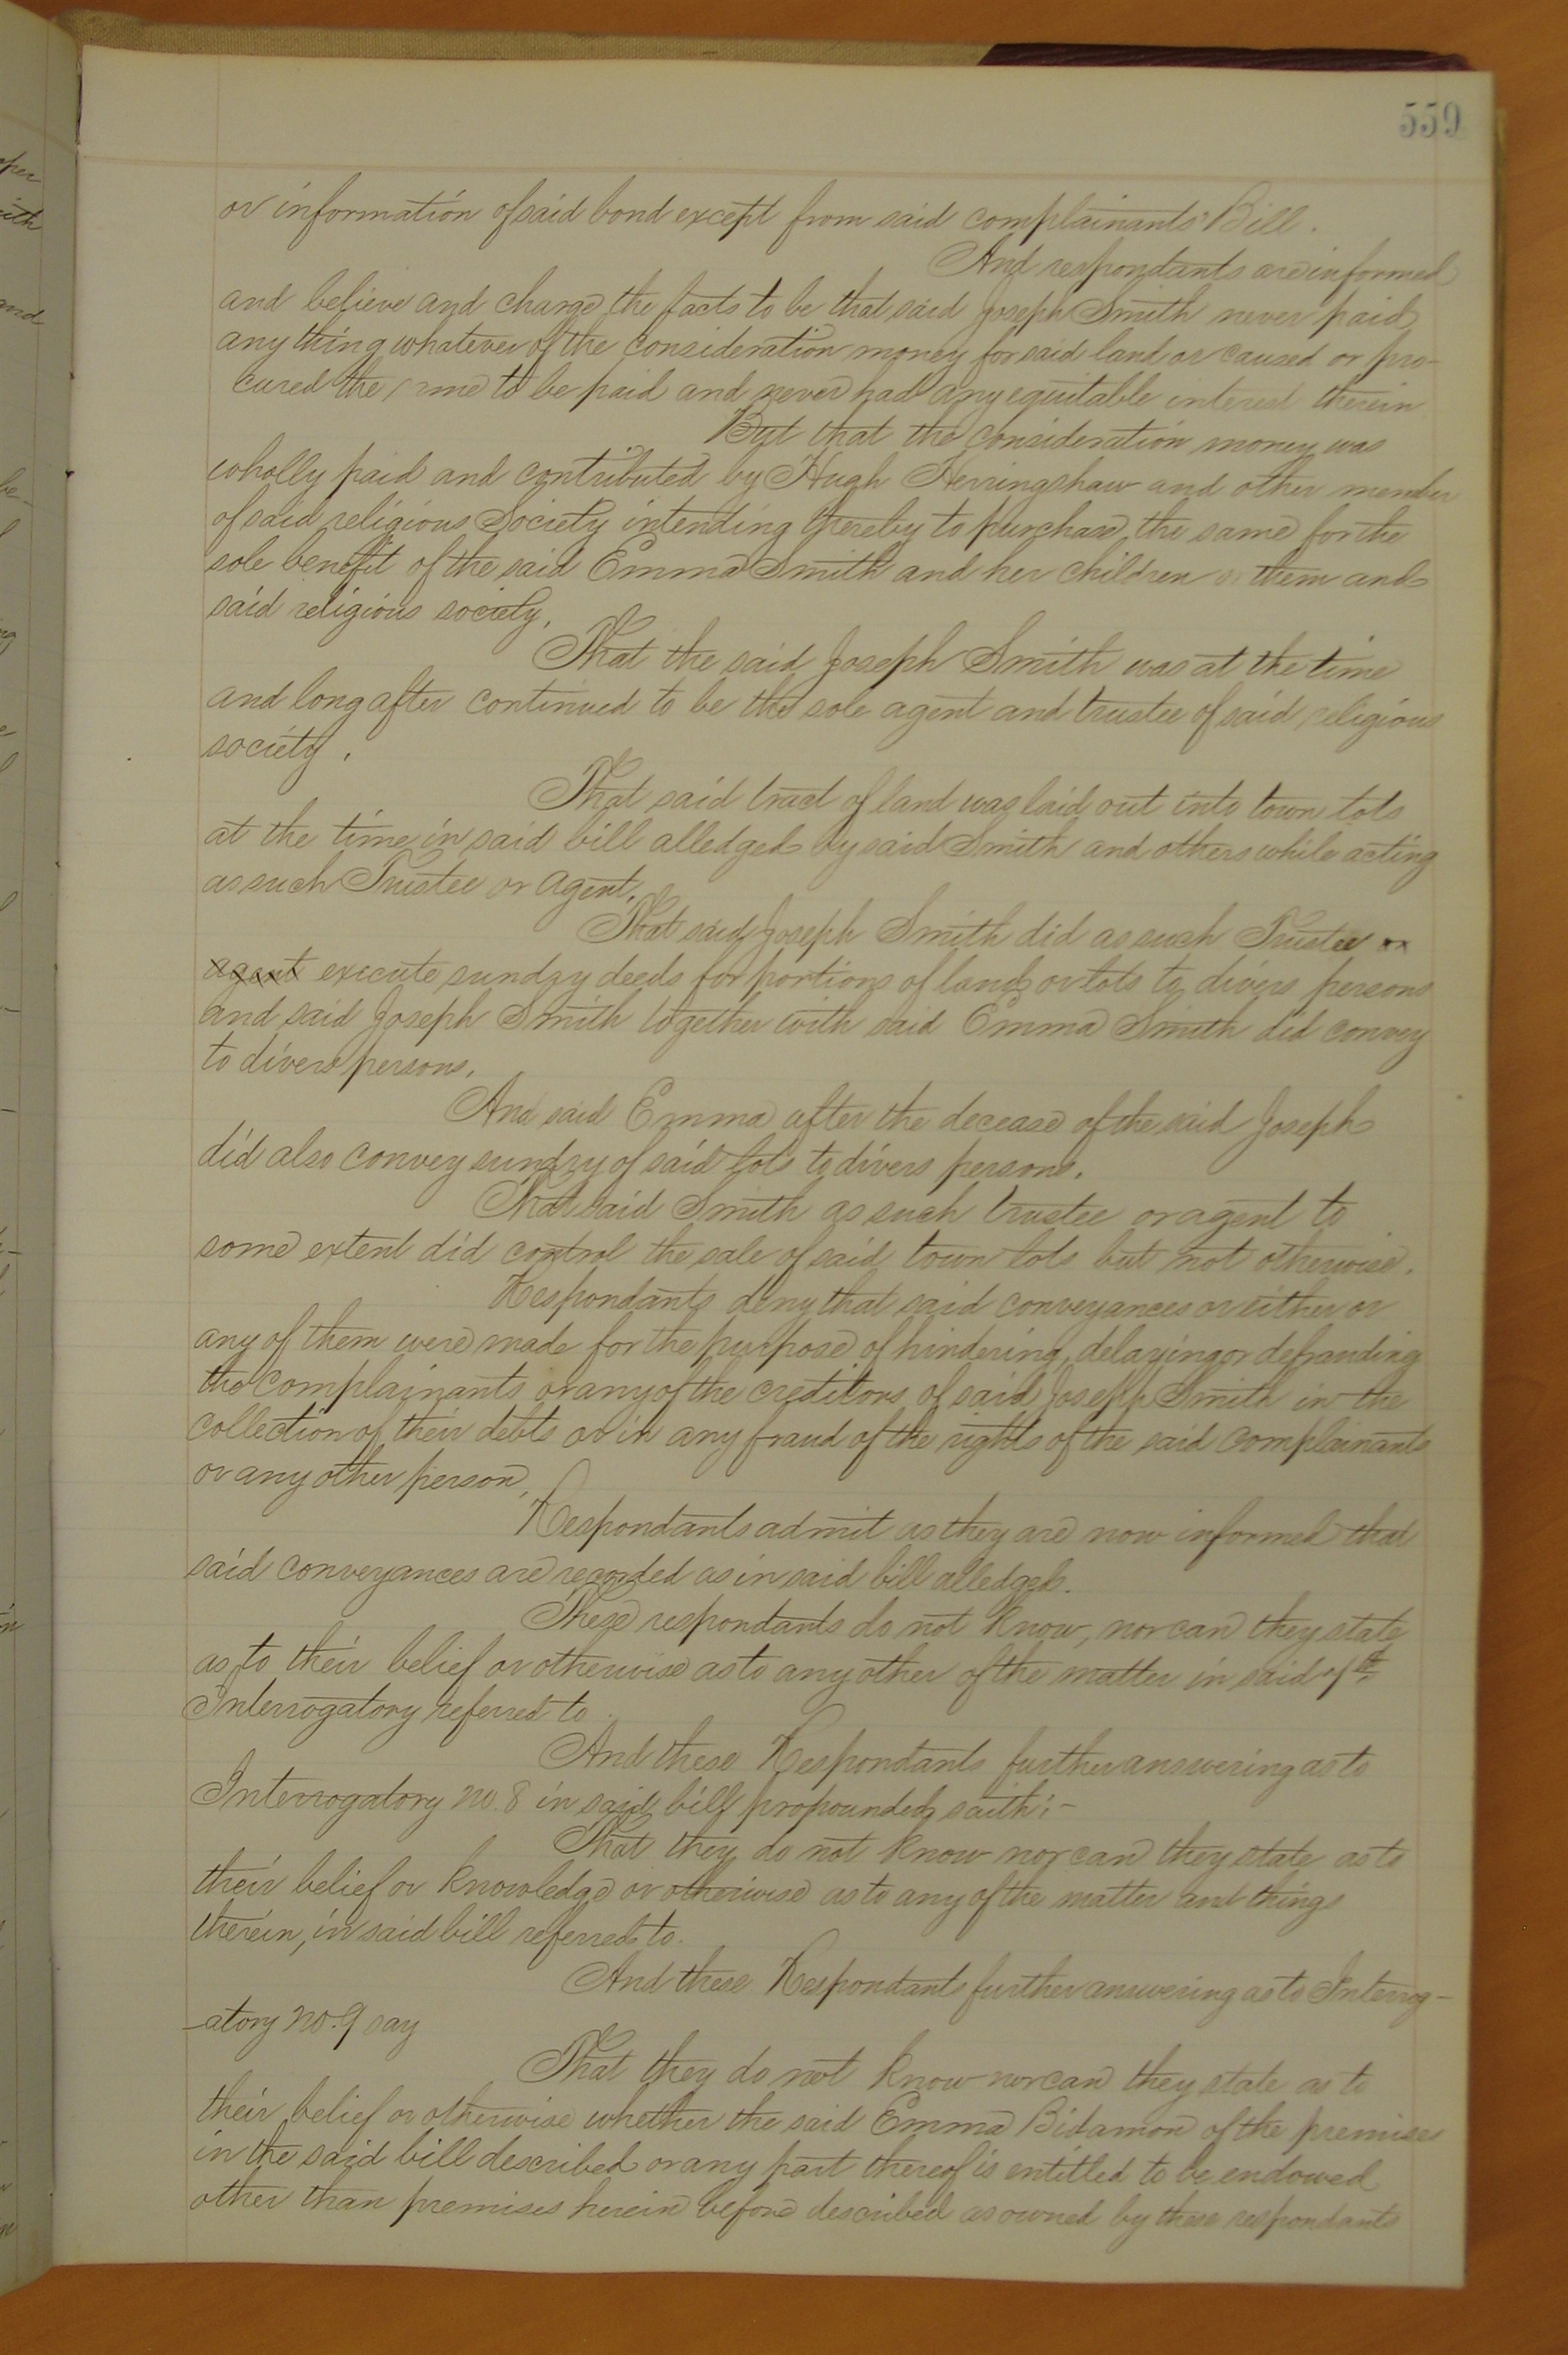 559
or information of said bond except from said complainants' Bill.
And respondants are informed
and believe and charge the facts to be that said Joseph Smith never paid
any thing whatever of the consideration money for said land or caused or pro-
cured the same to be paid and never had any equitable interest therein
But that the consideration money was
wholly paid and contributed by Hugh Herringshaw and other member
of said religious Society intending thereby to purchase the same for the
sole benefit of the said Emma Smith and her children or them and
said religious society.
That the said Joseph Smith was at the time
and long after continued to be the sole agent and trustee of said religious
society.
That said tract of land was laid out into town lots
at the time in said bill alledged by said Smith and others while acting
as such Trustee or agent.
That said Joseph Smith did as such Trustee or
agent execute sundry deeds for portions of land or lots to divers persons
and said Joseph Smith together with said Emma Smith did convey
to divers persons.
And said Emma after the decease of the said Joseph
did also convey sundry of said lots to divers persons.
That said Smith as such trustee or agent to
some extent did control the sale of said town lots but not otherwise.
Respondants deny that said conveyances or either or
any of them were made for the purpose of hindering, delaying or defrauding
the complainants or any of the creditors of said Joseph Smith in the
collection of their debts or in any fraud of the rights of the said complainants
or any other person,
Respondants admit as they are now informed that
said conveyances are recorded as in said bill alledged.
These respondants do not know, nor can they state
as to their belief or otherwise as to any other of the matter in said 7th
Interrogatory referred to.
And these Respondants further answering as to
Interrogatory no. 8 in said bill propounded, saith:-
That they do not know nor can they state as to
their belief or knowledge or otherwise as to any of the matter and things
therein, in said bill referred to.
And these Respondants further answering as to Interrog-
-atory no. 9 say
That they do not know nor can they state as to
their belief or otherwise whether the said Emma Bidamon of the premises
in the said bill described or any part thereof is entitled to be endowed
other than premises herein before described as owned by these respondants